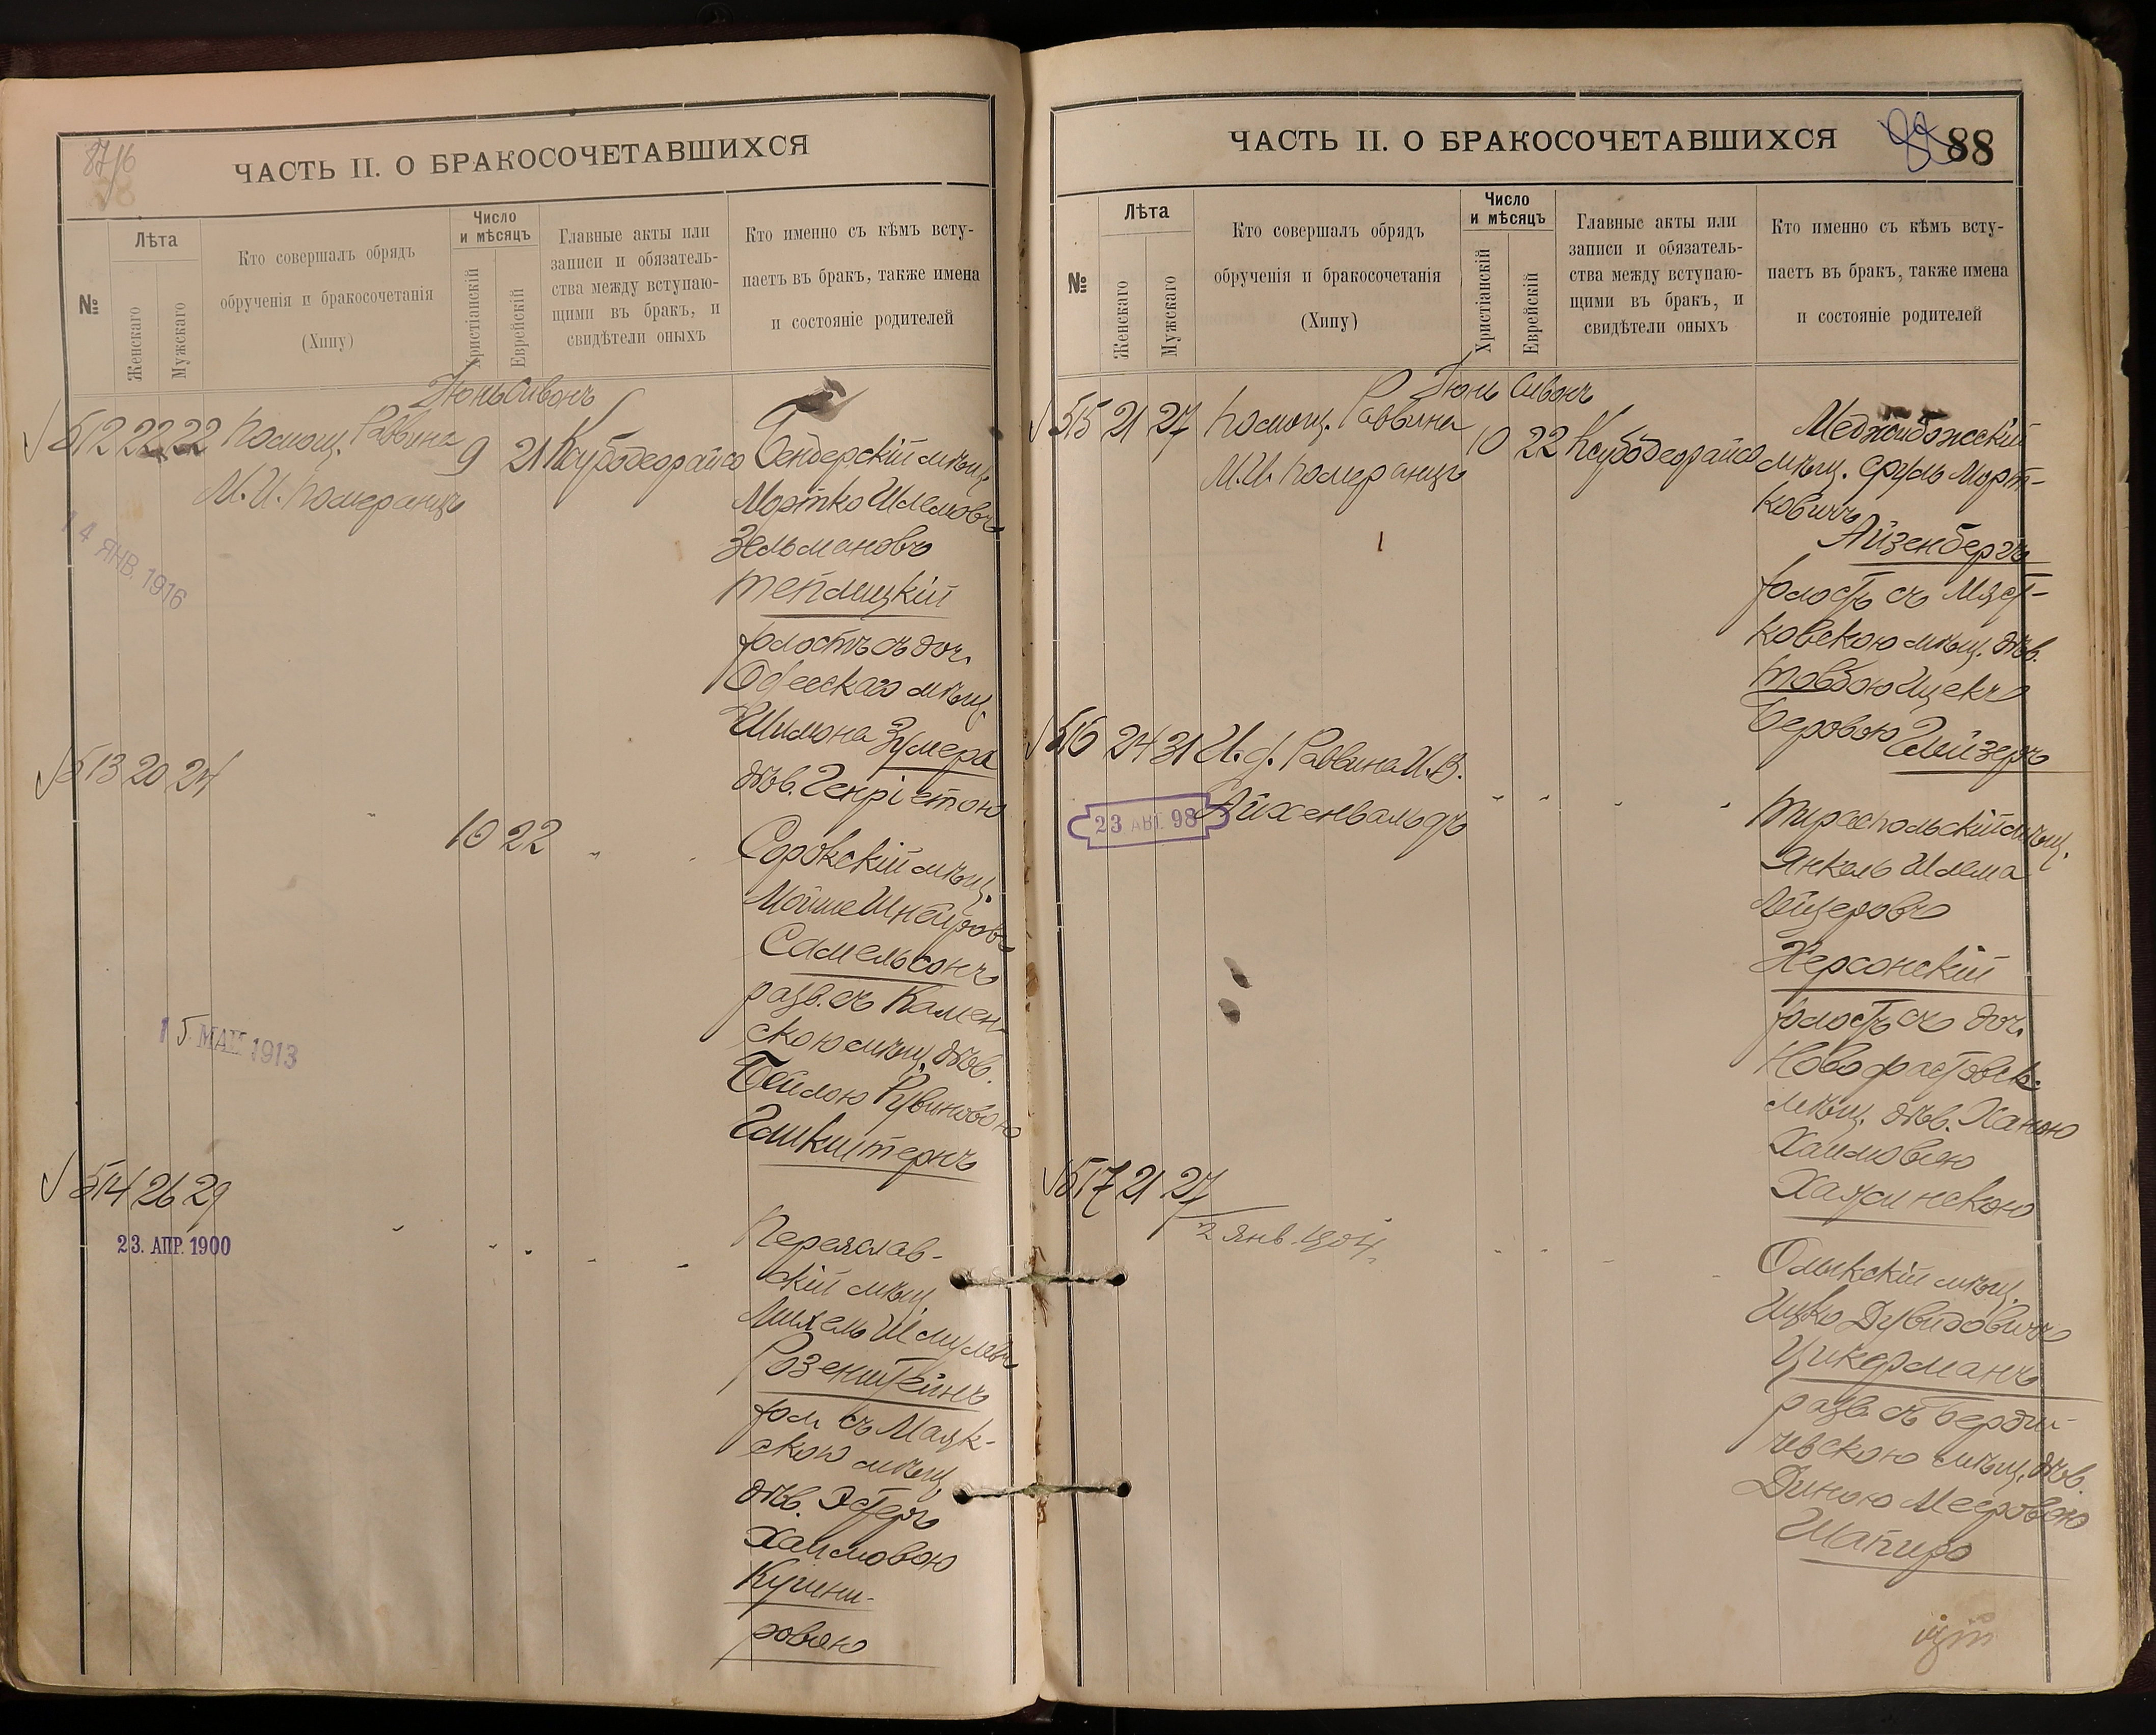 87/6
ЧАСТЬ II. О БРАКОСОЧЕТАВШИХСЯ
№
Лѣта
Женскаго
Мужскаго
Кто совершалъ обрядъ
обрученія и бракосочетанія
(Хипу)
Число
и мѣсяцъ
Христіанскій
Еврейскій
Главные акты или
записи и обязатель-
ства между вступаю-
щими въ бракъ, и
свидѣтели оныхъ
Кто именно съ кѣмъ всту-
паетъ въ бракъ, также имена
и состояніе родителей
Іюнь Сивонъ
512 22 22 Помощ. Раввина
М. И. Померанцъ
9 21 Ксубодеорайсо
Бендерскій мѣщ.
Мортко Шлемовъ
Зельмановъ
Теплицкій
холостъ съ доч.
Одесскаго мѣщ.
Шимона Зумера
дѣв. Генріетою
14 ЯНВ. 1916
513 20 24
10 22
Сорокскій мѣщ.
Мойше Шнейровъ
Самельсонъ
разв. съ Камен-
скою мѣщ. дѣв.
Бейлою Рувиновою
15 МАЙ 1913
514 26 29
23. АПР. 1900
Переяслав-
скій мѣщ.
Михель Шмулевъ
Розенштейнъ
хол. съ Маяк-
скою мѣщ.
дѣв. Эстеръ
Хаимовою
Кушни-
ровою
ЧАСТЬ II. О БРАКОСОЧЕТАВШИХСЯ
88
№
Лѣта
Женскаго
Мужскаго
Кто совершалъ обрядъ
обрученія и бракосочетанія
(Хипу)
Число
и мѣсяцъ
Христіанскій
Еврейскій
Главные акты или
записи и обязатель-
ства между вступаю-
щими въ бракъ, и
свидѣтели оныхъ
Кто именно съ кѣмъ всту-
паетъ въ бракъ, также имена
и состояніе родителей
Іюнь Сивонъ
515 21 27 Помощ. Раввина
М. И. Померанцъ
10 22 Ксубодеорайсо
Меджибожскій
мѣщ. Сруль Морт-
ковичъ
Айзенбергъ
холостъ съ Мяст-
ковскою мѣщ. дѣв.
Товбою Ицекъ
Беровою Глейзеръ
516 24 31 И. д. Раввина И. В.
Айхенвальдъ
23 АВГ. 98
Тираспольскій мѣщ.
Янкель Шлема
Лейзеровъ
Херсонскій
холостъ съ доч.
Новофастовск.
мѣщ. дѣв. Ханою
Хаимовою
517 21 27
2 Янв. 1904
Олыкскій мѣщ.
Ицко Дувидовичъ
Цикерманъ
разв. съ Берди-
чевскою мѣщ. дѣв.
Диною Мееровою
Шапиро